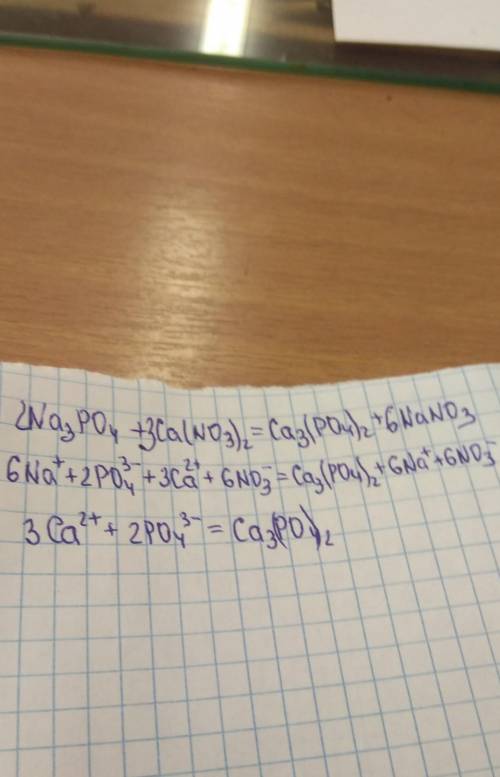 2Na₃PO₄ + 3Ca(NO₃)₂ = Ca₃(PO₄)₂ + 6NaNO₃
6Na⁺ + 2PO₄³⁻ + 3Ca²⁺ + 6NO₃⁻ = Ca₃(PO₄)₂ + 6Na⁺ + 6NO₃⁻
3Ca²⁺ + 2PO₄³⁻ = Ca₃(PO₄)₂